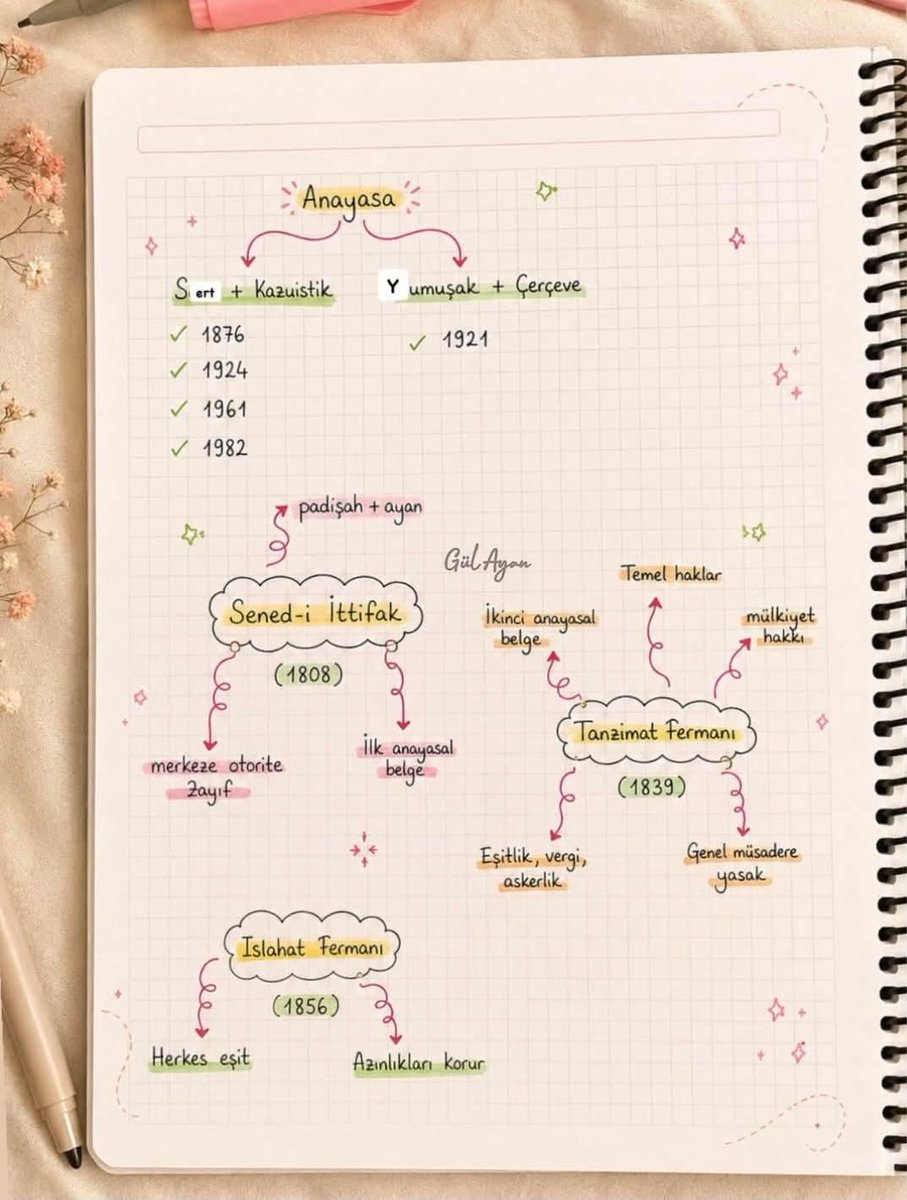 Anayasa
Sert + Kazuistik
Yumuşak + Çerçeve
✓ 1876
✓ 1924
✓ 1961
✓ 1982
✓ 1921
padişah + ayan
Sened-i İttifak
(1808)
merkeze otorite
zayıf
İlk anayasal
belge
Gül Ayan
Temel haklar
İkinci anayasal
belge
mülkiyet
hakkı
Tanzimat Fermanı
(1839)
Eşitlik, vergi,
askerlik
Genel müsadere
yasak
Islahat Fermanı
(1856)
Herkes eşit
Azınlıkları korur